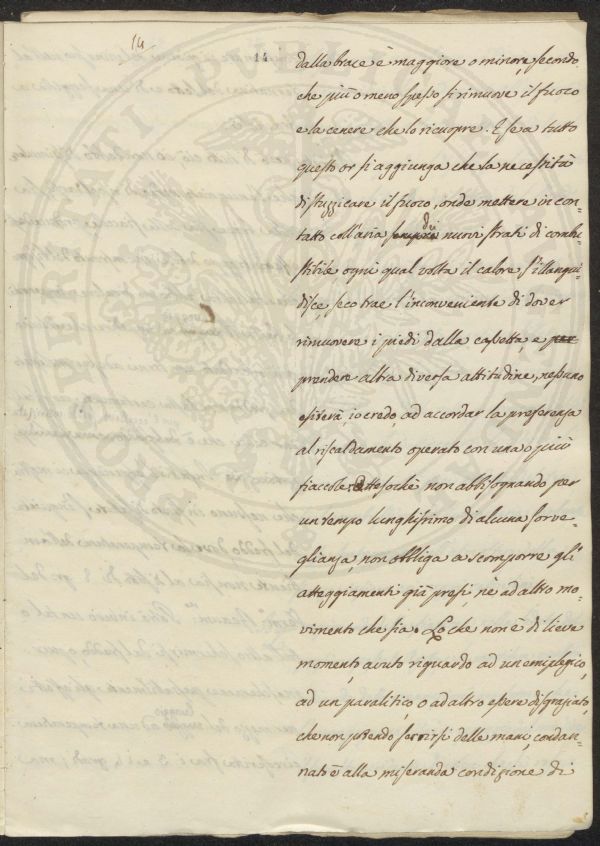 14
14
dalla brace è maggiore o minore, secondo
che più o meno spesso si rimuove il fuoco
e la cenere che lo ricuopre. E se a tutto
questo or si aggiunga che la necessità
di stuzzicare il fuoco, onde mettere in con-
tatto coll'aria sempre di nuovi strati di comb-
stibile ogni qual volta il calore s'illangui-
disce, seco trae l'inconveniente di dover
rimuovere i piedi dalla cassetta, e per
prendere altra diversa attitudine, nessuno
esiterà, io credo, ad accordar la preferenza
al riscaldamento operato con una o più
fiaccole. Attesochè non abbisognando per
un tempo lunghissimo di alcuna sorve-
glianza, non obbliga a scomporre gli
atteggiamenti già presi, nè ad altro mo-
vimento che sia. Lo che non è di lieve
momento, avuto riguardo ad un emiplegico,
ad un paralitico, o ad altro essere disgraziato,
che non potendo servirsi delle mani, condan-
nato è alla miseranda condizione di